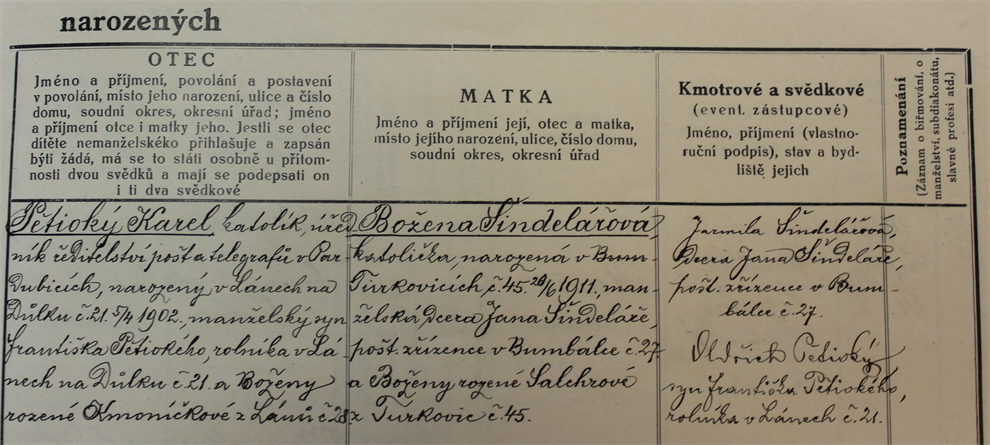 narozených
OTEC
Jméno a příjmení, povolání a postavení
v povolání, místo jeho narození, ulice a číslo
domu, soudní okres, okresní úřad; jméno
a příjmení otce i matky jeho. Jestli se otec
dítěte nemanželského přihlašuje a zapsán
býti žádá, má se to státi osobně u přítom-
nosti dvou svědků a mají se podepsati on
i ti dva svědkové
Petioký Karel, katolík, úřed-
ník ředitelství pošt a telegrafů v Par-
dubicích, narozený v Lánech na
Důlku č. 21. 5/4 1902., manželský syn
Františka Petiokého, rolníka v Lá-
nech na Důlku č. 21. a Boženy
rozené Kmoníčkové z Lánů č. 28
MATKA
Jméno a příjmení její, otec a matka,
místo jejího narození, ulice, číslo domu,
soudní okres, okresní úřad
Božena Šindelářová,
katolička, narozená v Bum-
Turkovicích, č. 45. 20/6 1911., man-
želská dcera Jana Šindeláře,
pošt. zřízence v Bumbálce č. 27
a Boženy rozené Salchrové
z Turkovic č. 45.
Kmotrové a svědkové
(event. zástupcové)
Jméno, příjmení (vlastno-
ruční podpis), stav a byd-
liště jejich
Jarmila Šindelářová,
dcera Jana Šindeláře,
pošt. zřízence v Bum-
bálce č. 27.
Oldřich Petioký
syn Františka Petiokého,
rolníka v Lánech č. 21.
Poznamenání
(Záznam o biřmování, o
manželství, subdiakonátu,
slavné profesi atd.)